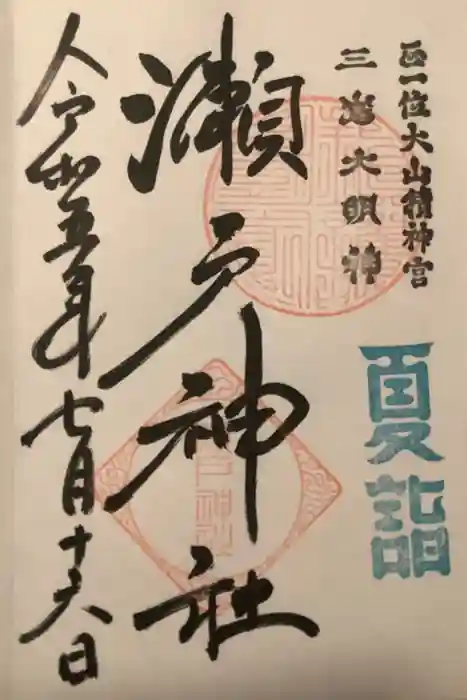 正一位大山積神宮
三嶌大明神
夏詣
瀬戸神社
令和五年七月十六日